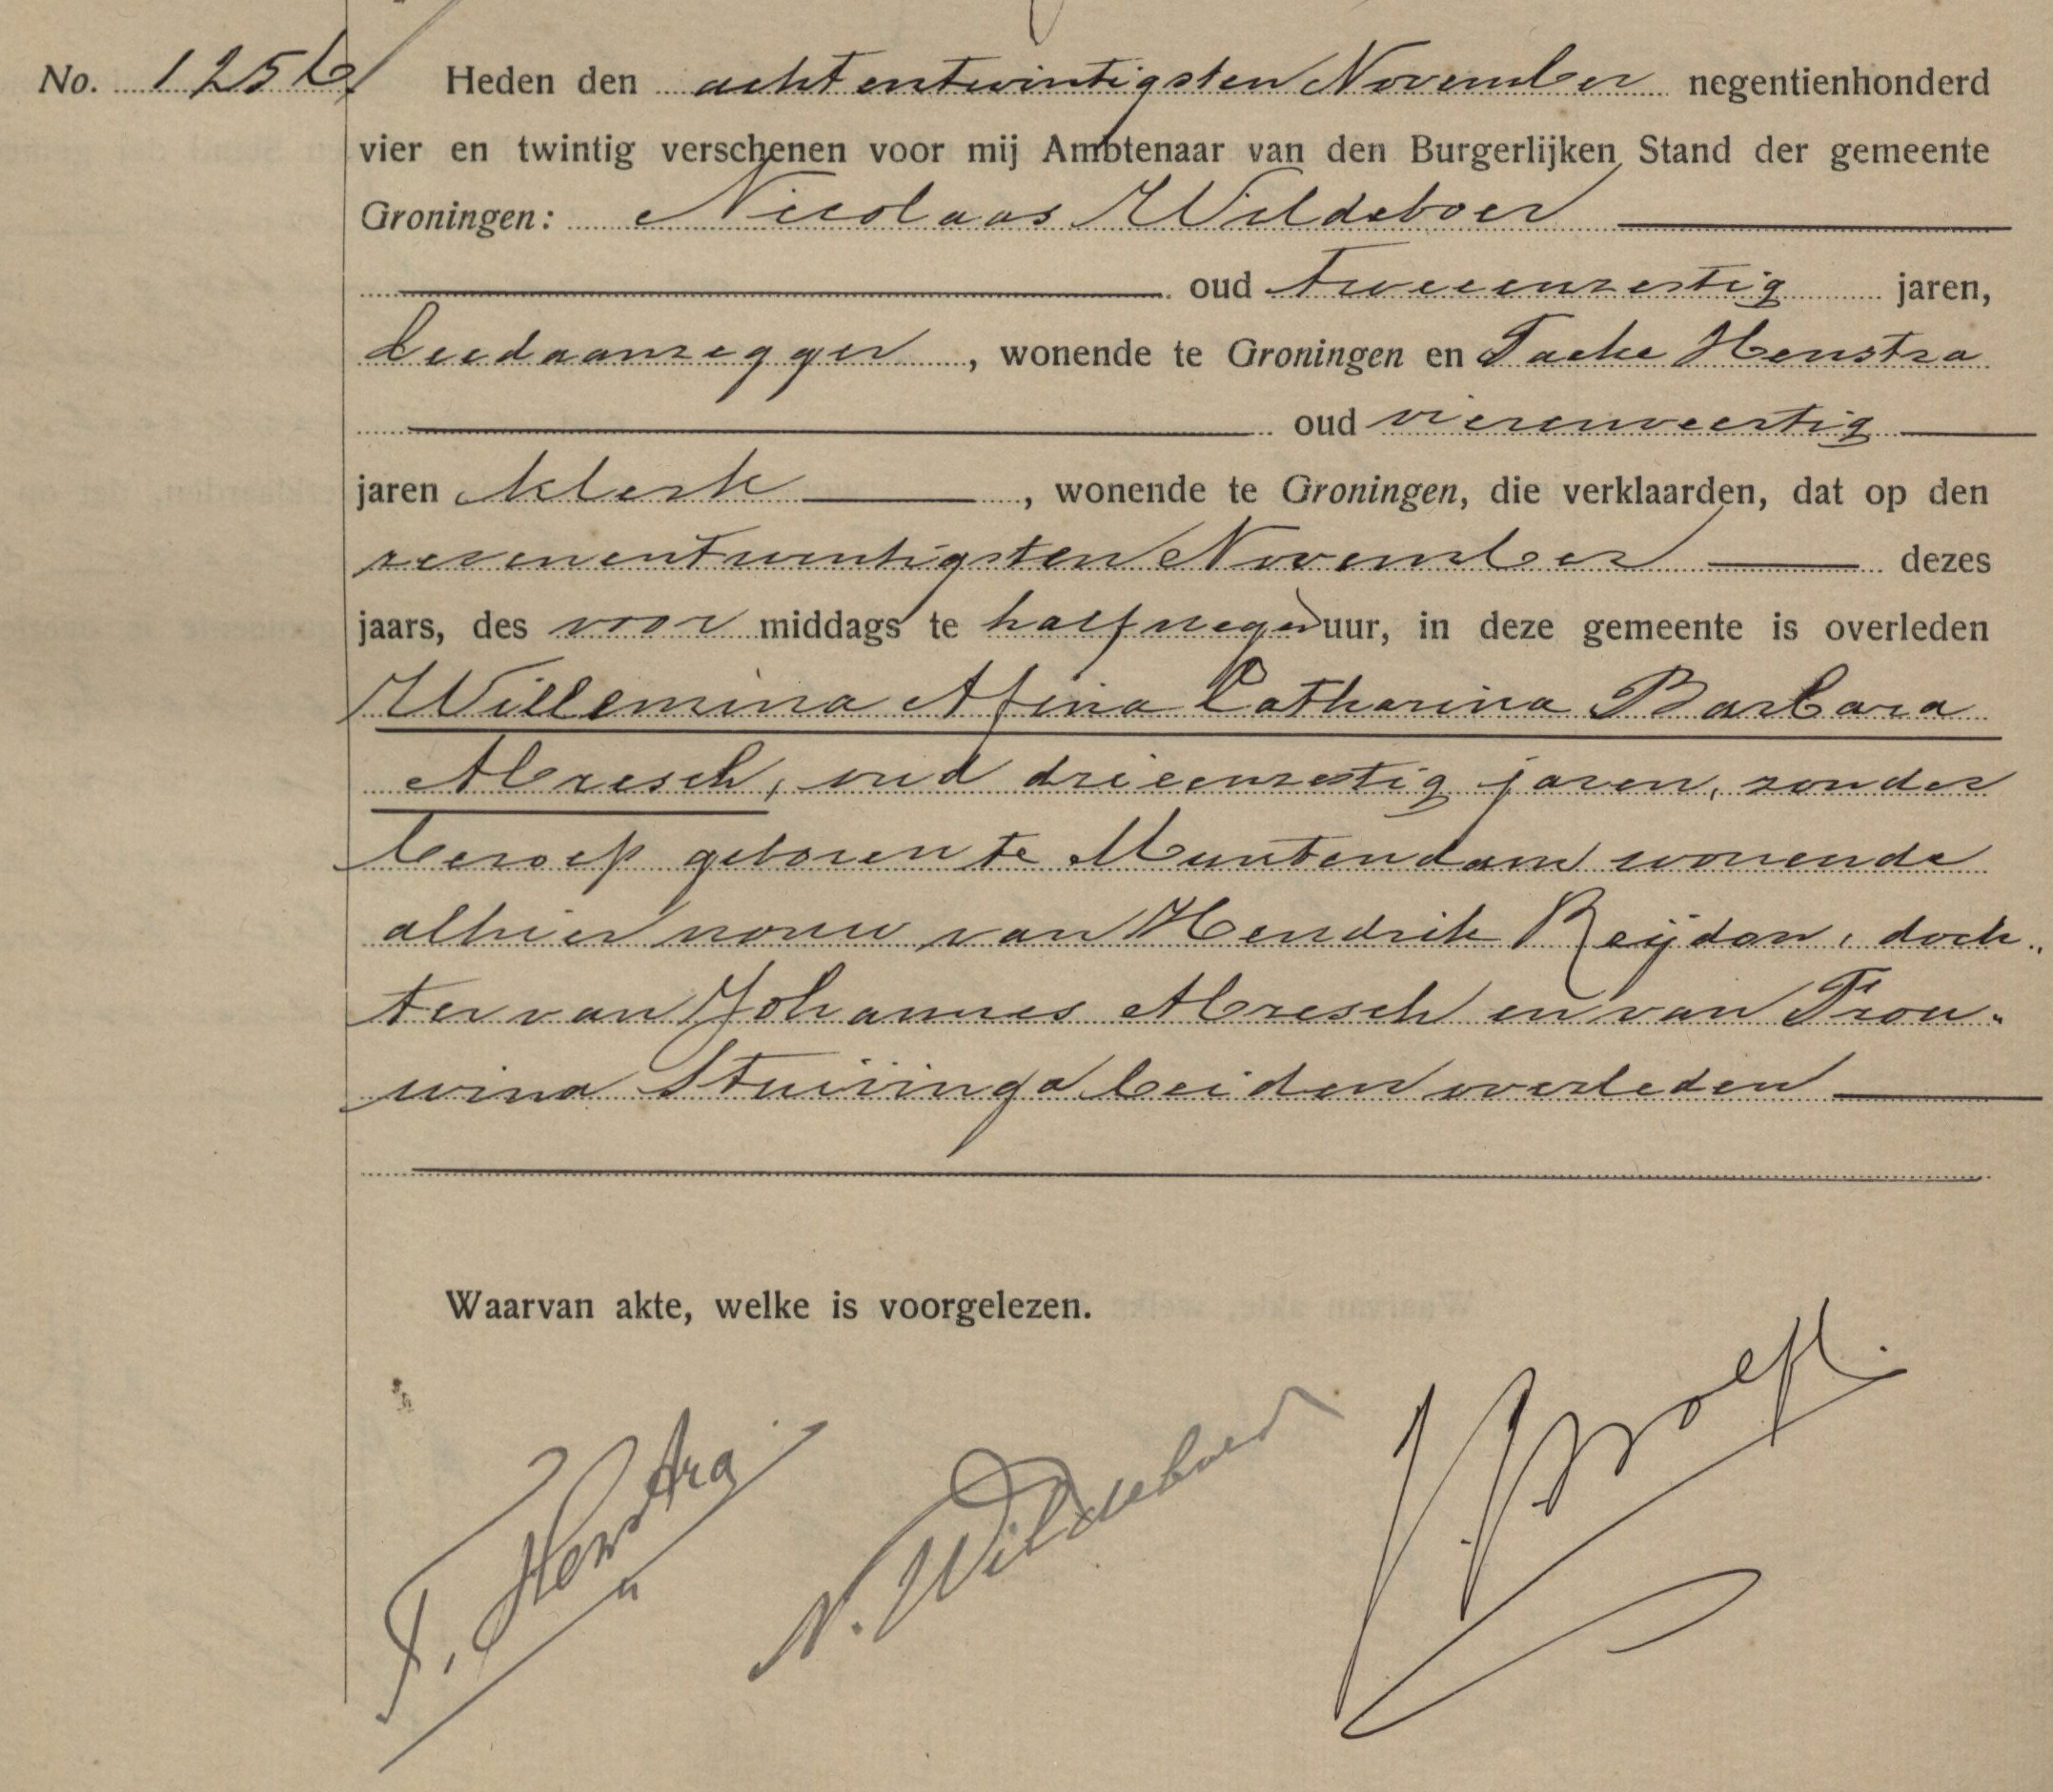 No. 1256 Heden den achtentwintigsten November negentienhonderd
vier en twintig verschenen voor mij Ambtenaar van den Burgerlijken Stand der gemeente
Groningen: Nicolaas Wildeboer
oud tweeenzestig jaren,
leedaanzegger, wonende te Groningen en Tacke Henstra
oud vierenveertig
jaren klerk, wonende te Groningen, die verklaarden, dat op den
zevenentwintigsten November dezes
jaars, des voor middags te half negen uur, in deze gemeente is overleden
Willemina Afina Catharina Barbara
Abresch, oud drieenzestig jaren, zonder
beroep geboren te Muntendam wonende
alhier vrouw van Hendrik Reijdon, doch„
ter van Johannes Abresch en van Trou„
wina Stuivinga beiden overleden
Waarvan akte, welke is voorgelezen.
T. Henstra N. Wildeboer